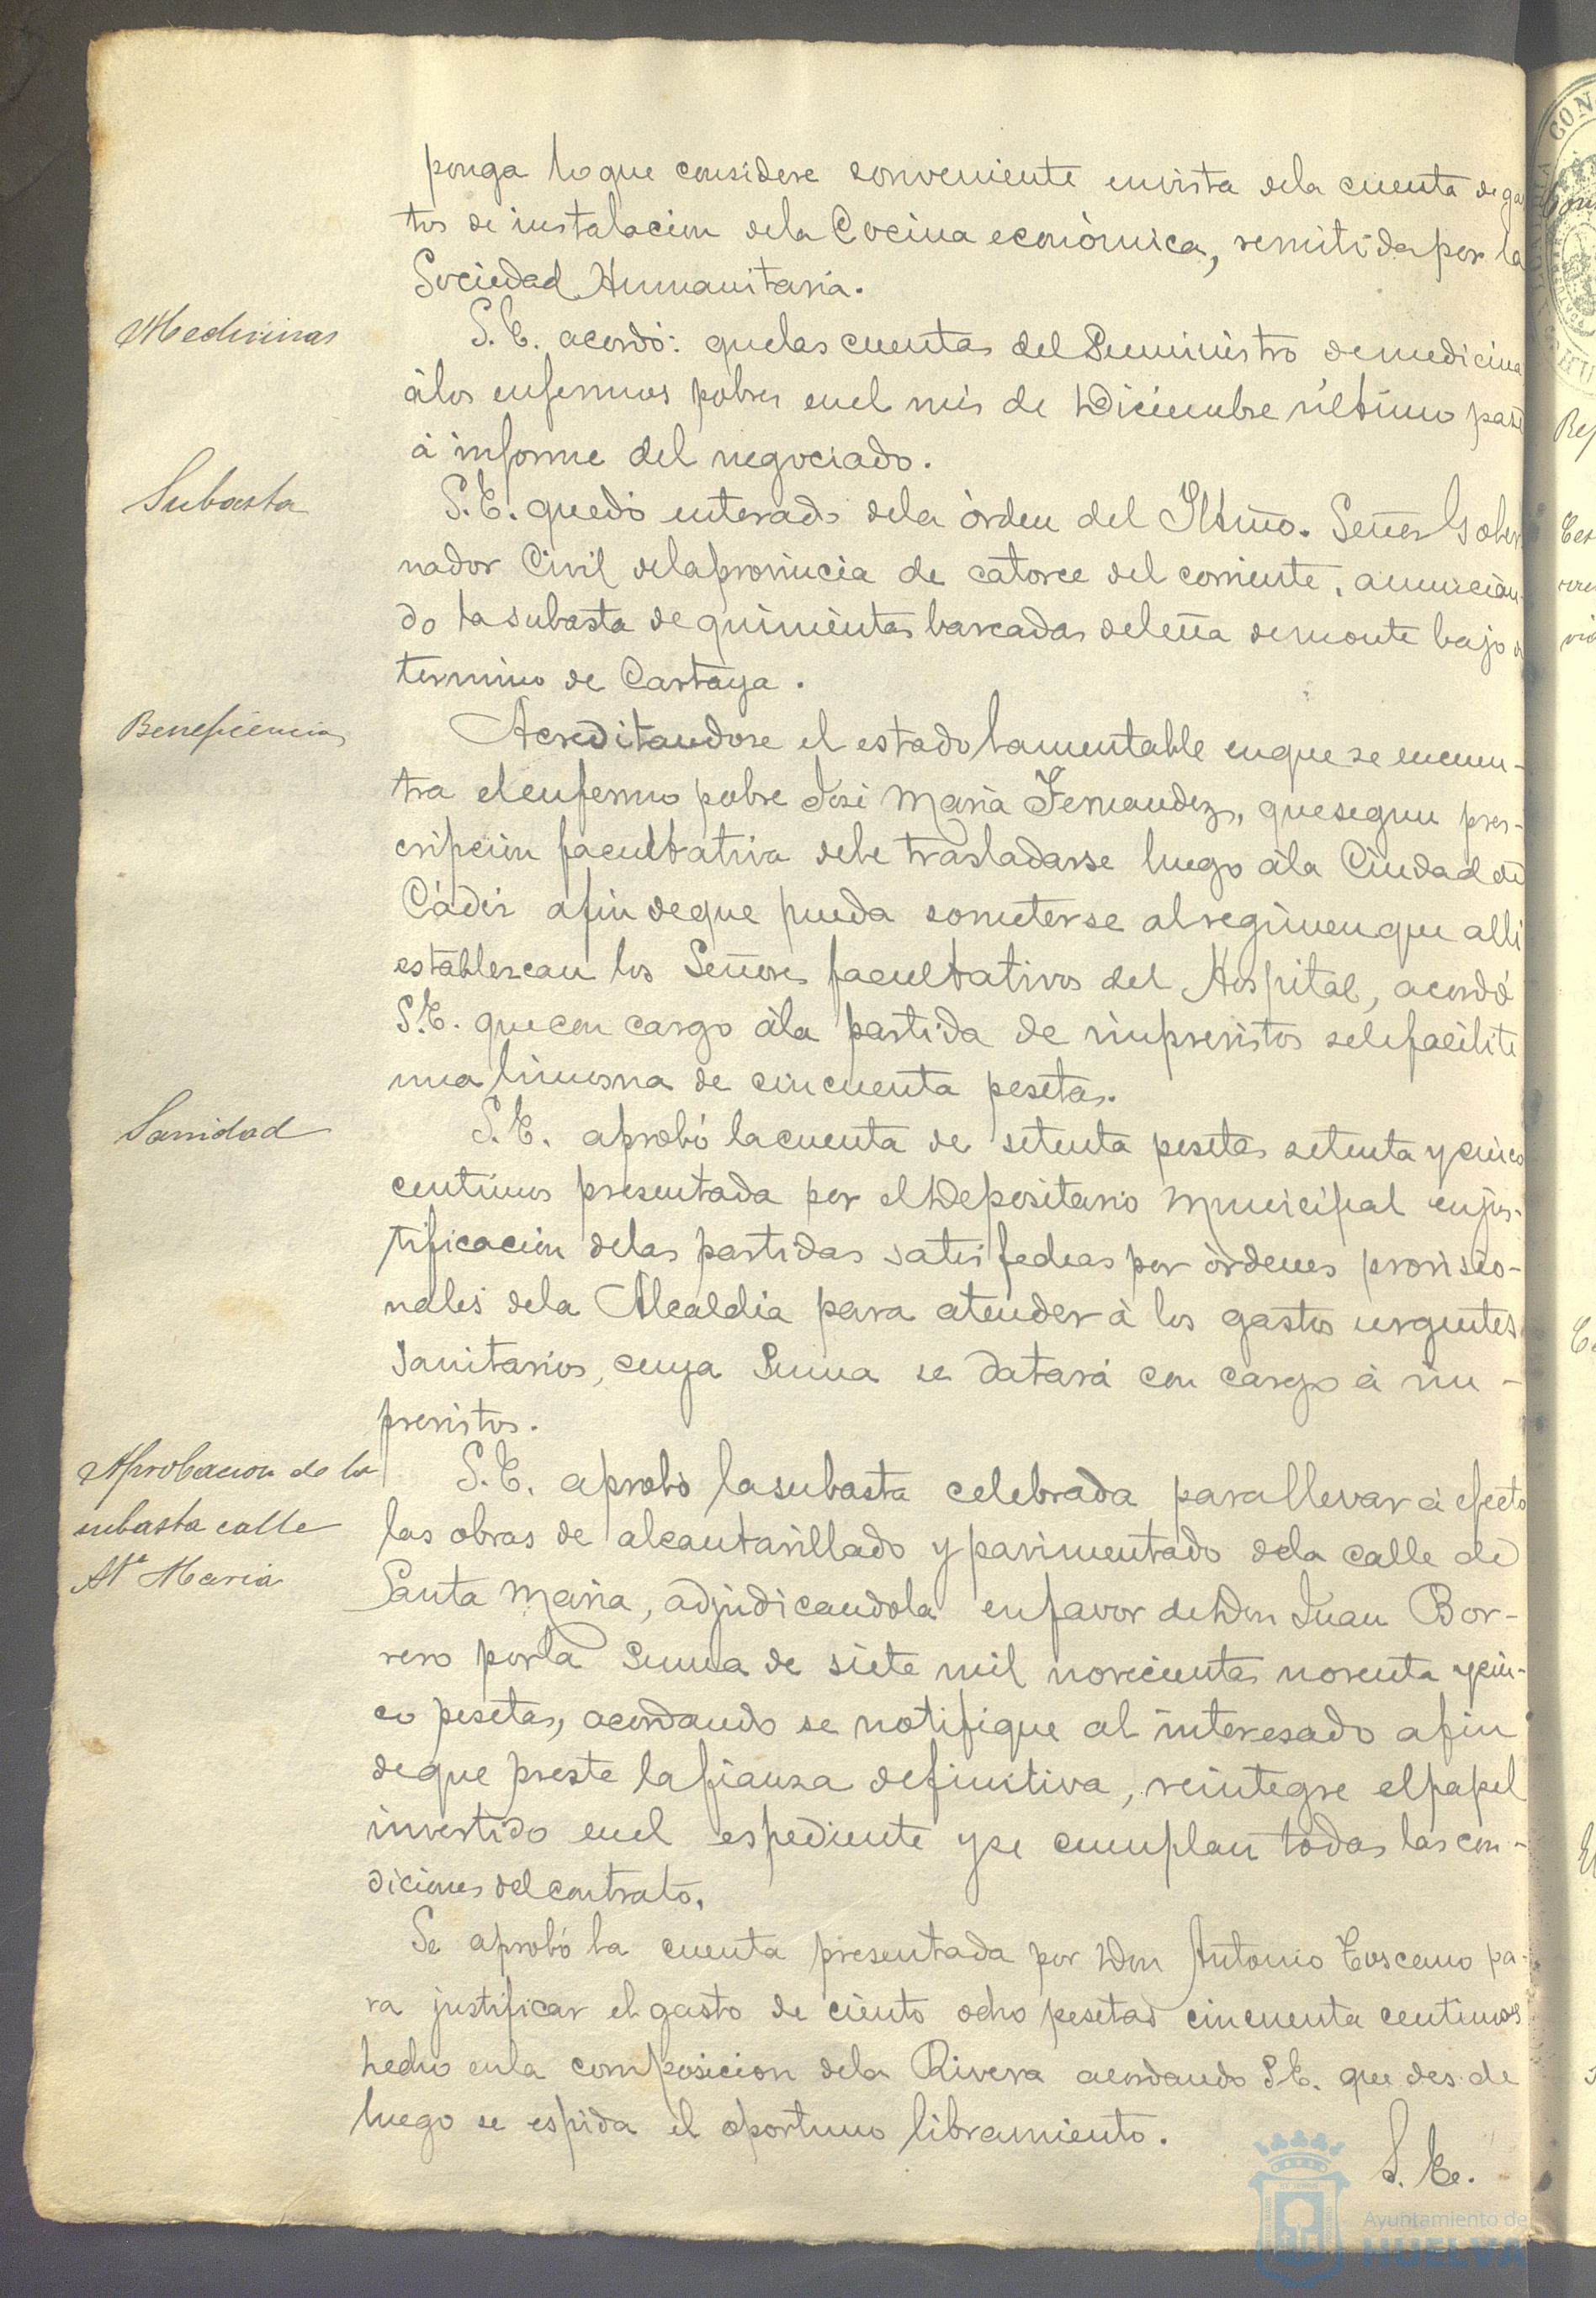 ponga lo que considere conveniente en vista de la cuenta de gas
tos de instalación de la Cocina económica, remitida por la
Sociedad Humanitaria.
Medicinas
S. E. acordó: que las cuentas del Suministro de medicina
á los enfermos pobres en el mes de Diciembre último pase
á informe del negociado.
Subasta
S. E. quedó enterado de la órden del Iltmo. Señor Gober
nador Civil de la provincia de catorce del corriente, anuncian-
do la subasta de quinientas barcadas de leña de monte bajo
termino de Cartaya.
Beneficencia
Acreditandose el estado lamentable en que se encuen-
tra el enfermo pobre José María Fernandez, que segun pres-
cripción facultativa debe trasladarse luego á la Ciudad de
Cádiz a fin de que pueda someterse al regimen que alli
establezcan los Señores facultativos del Hospital, acordó
S. E. que con cargo á la partida de imprevistos se le facilite
una limosna de cincuenta pesetas.
Sanidad
S. E. aprobó la cuenta de setenta pesetas setenta y cinco
centimos presentada por el Depositario Municipal en jus-
tificación de las partidas satisfechas por órdenes provisio-
nales de la Alcaldía para atender á los gastos urgentes
Sanitarios, cuya Suma se datará con cargo á im-
previstos.
Aprobacion de la
subasta calle
Sta Maria
S. E. aprobó la subasta celebrada para llevar á efecto
las obras de alcantarillado y pavimentado de la calle de
Santa María, adjudicandola en favor de Don Juan Bor-
rero por la Suma de siete mil novecientas noventa y cin-
co pesetas, acordando se notifique al interesado a fin
de que preste la fianza definitiva, reintegre el papel
invertido en el espediente y se cumplan todas las con-
diciones del contrato.
Se aprobó la cuenta presentada por Don Antonio Toscano pa-
ra justificar el gasto de ciento ocho pesetas cincuenta centimos
hecho en la composicion de la Rivera acordando S. E. que desde
luego se espida el oportuno libramiento.
S. E.
Ayuntamiento de
HUELVA